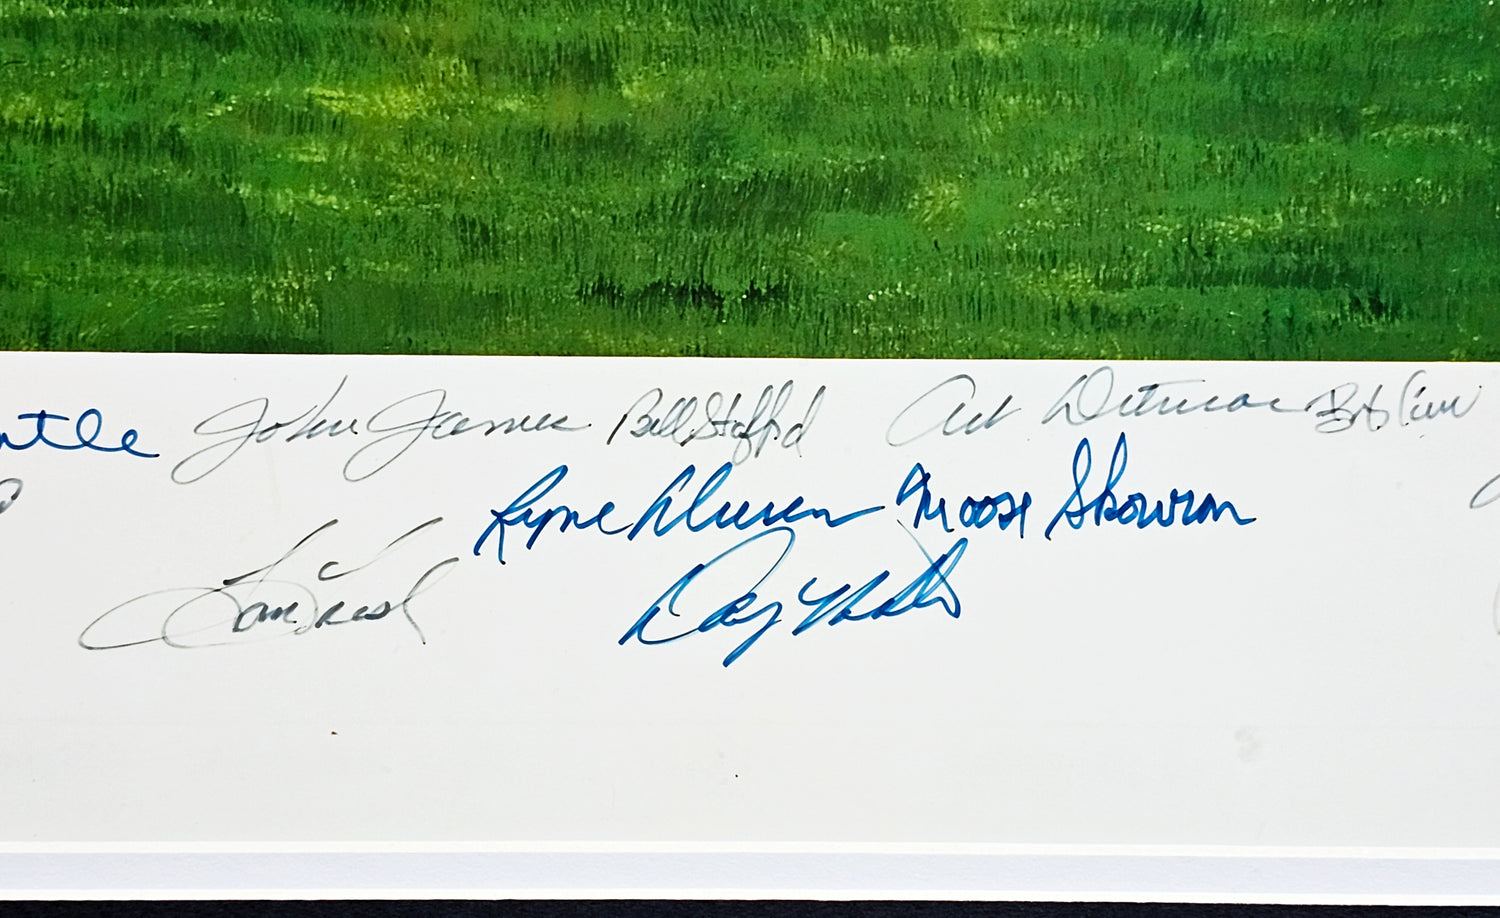 ntle John James Bill Stafford Art Ditmar Bob Cerv
Ryne Duren "Moose Skowron
Tom Tresh